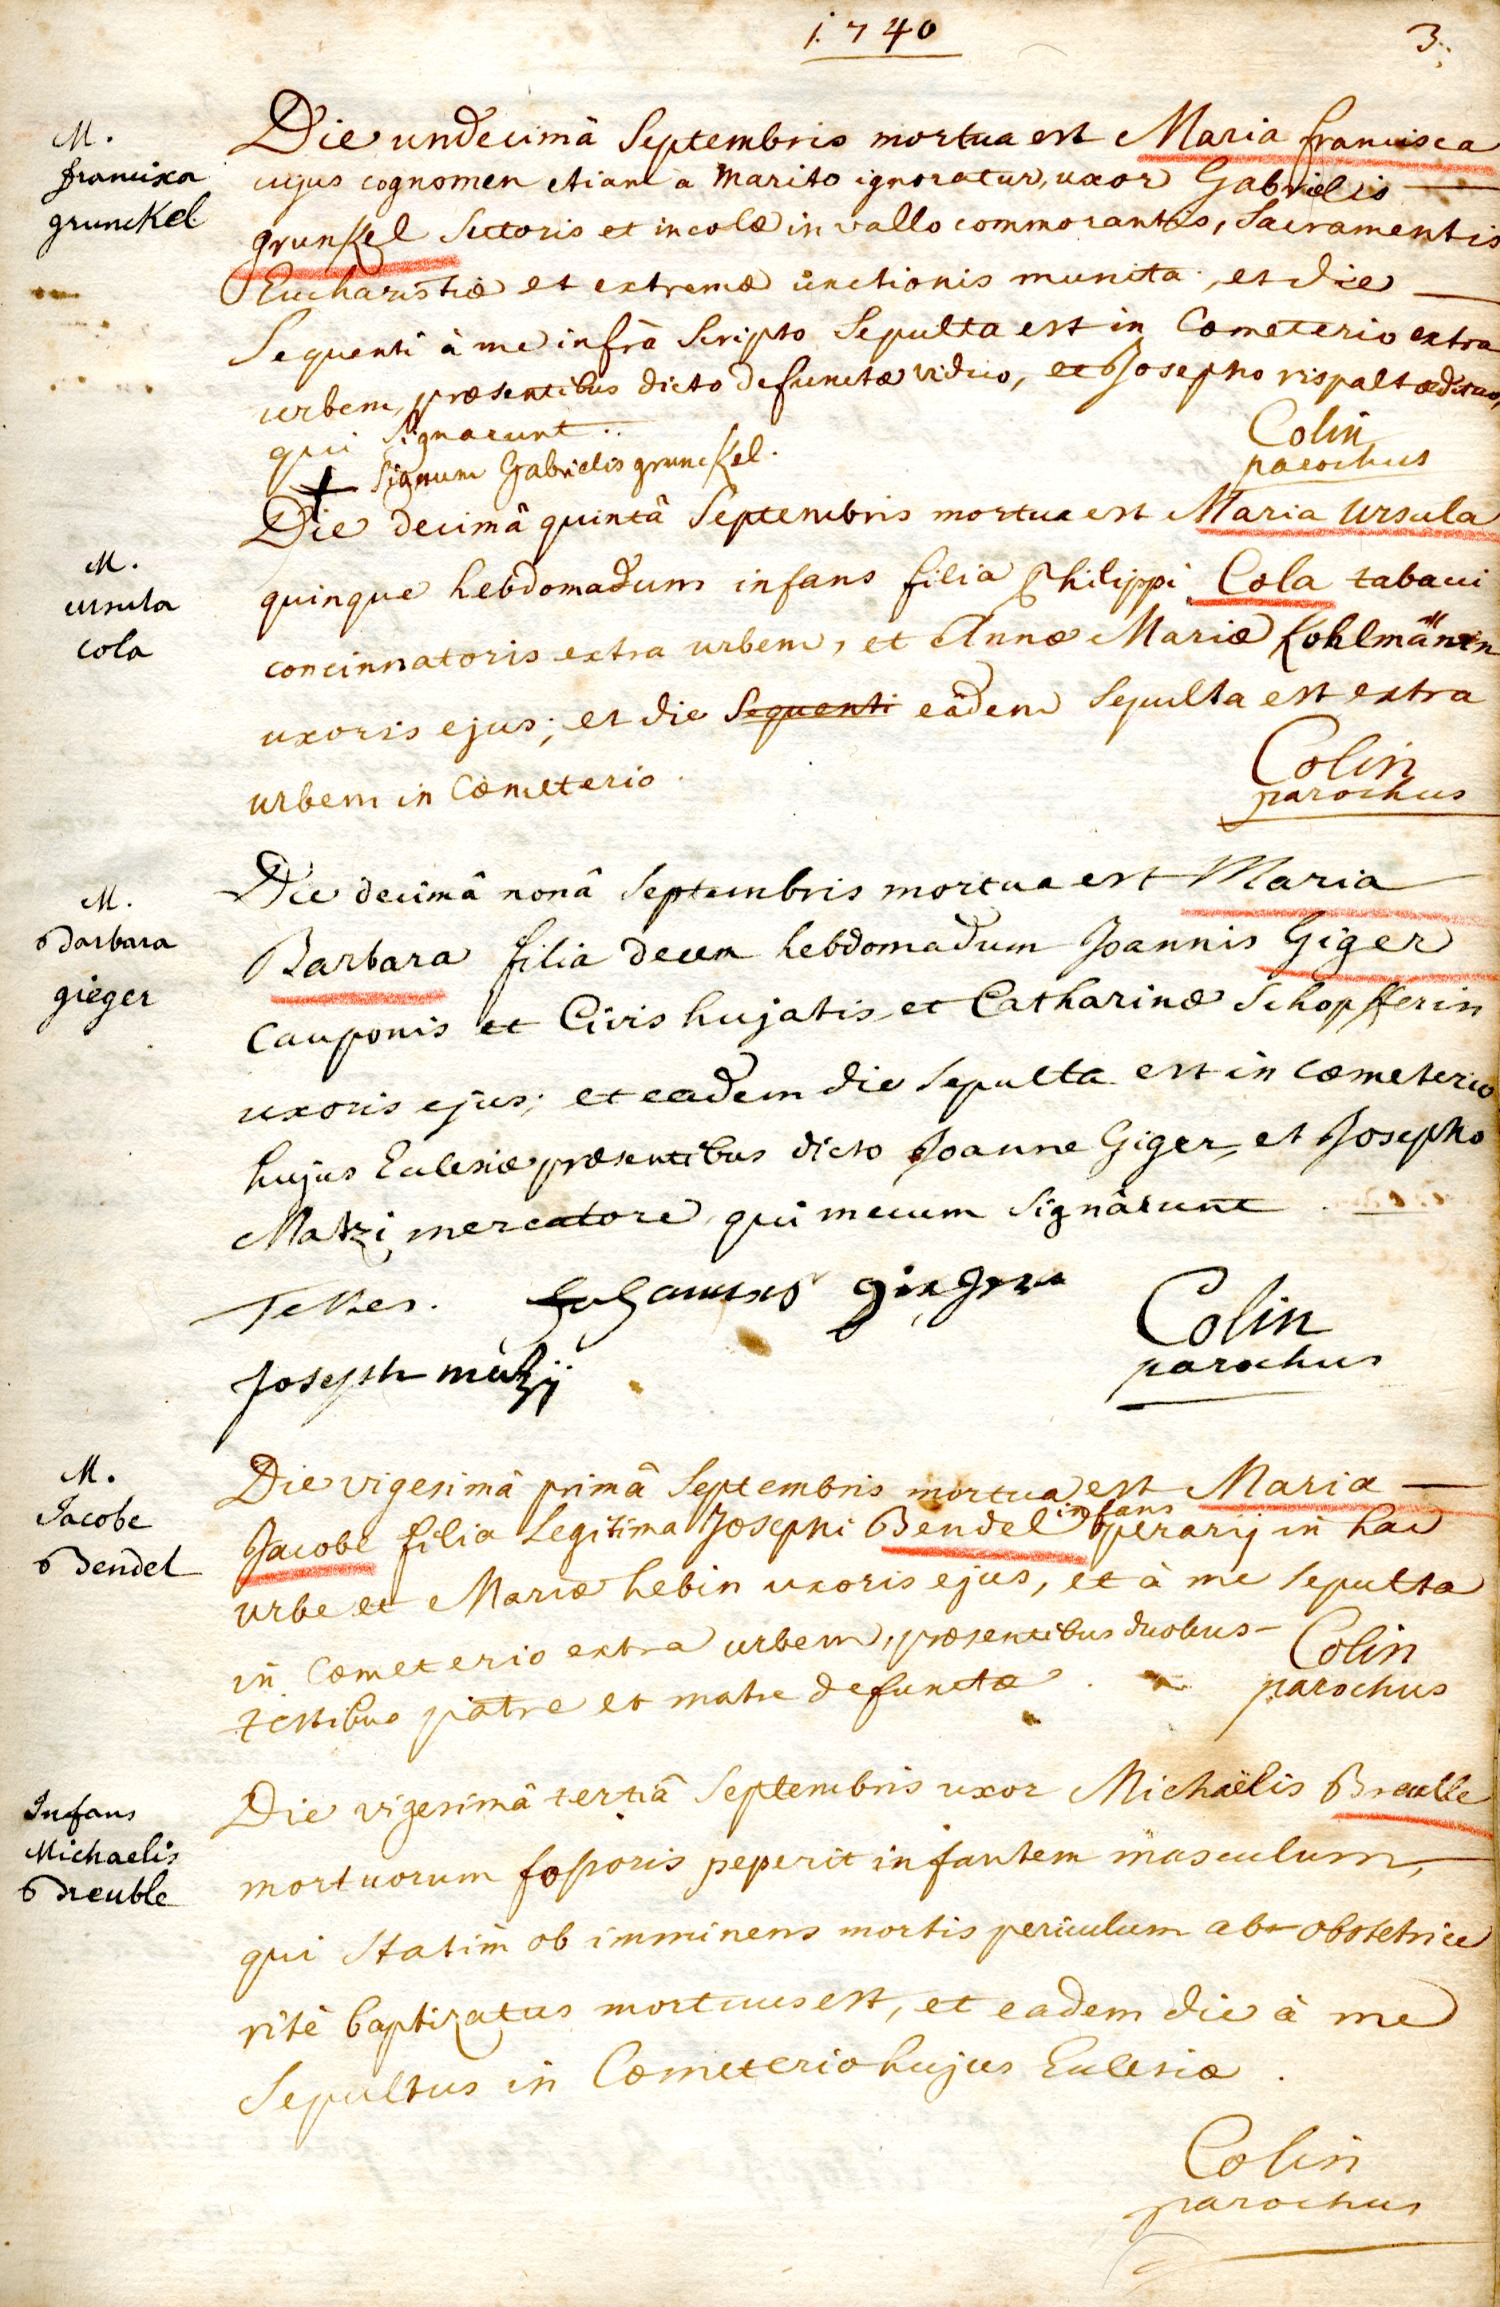 1740
3.
M.
francisca
grunckel
Die undecimâ Septembris mortua est Maria francisca
cujus cognomen etiam a marito ignoratur, uxor Gabrielis
grunkel Sectoris et incolæ in vallo commorantis, Sacramentis
Eucharistiæ et extremæ unctionis munita, et die
Sequenti à me infrà Scripto Sepulta est in Cœmeterio extra
urbem, præsentibus dicto defunctæ viduo, et Josepho rispalt ædituo,
qui Signarunt..
Colin
parochus
Signum Gabrielis grunckel.
M.
ursula
cola
Die decimâ quintâ Septembris mortua est Maria Ursula
quinque hebdomadum infans filia Philippi Cola tabaci
concinnatoris extra urbem, et Annæ Mariæ Kohlmänin
uxoris ejus; et die Sequenti eâdem Sepulta est extra
urbem in Cœmeterio.
Colin
parochus
M.
Barbara
gieger
Die decimâ nonâ Septembris mortua est Maria
Barbara filia decem hebdomadum Joannis Giger
Cauponis et Civis hujatis et Catharinæ Schopfferin
uxoris ejus; et eadem die Sepulta est in cœmeterio
hujus Ecclesiæ præsentibus dicto Joanne Giger, et Josepho
Matzi mercatore, qui mecum Signârunt.
Testes. Johannes gieger
Colin
parochus
Joseph mutzij
M.
Jacobe
Bendel
Die vigesimâ primâ Septembris mortua est Maria
infans
Jacobe filia Legitima Josephi Bendel operarij in hac
urbe et Mariæ hebin uxoris ejus, et à me Sepulta
in Cœmeterio extra urbem, præsentibus duobus
testibus patre et matre defunctæ.
Colin
parochus
Infans
Michaelis
Breuble
Die vigesimâ tertiâ Septembris uxor Michaëlis
mortuorum foßoris peperit infantem masculum,
qui Statim ob imminens mortis periculum ab obstetrice
ritè baptizatus mortuus est, et eadem die à me
Sepultus in Cœmeterio hujus Ecclesiæ.
Colin
parochus